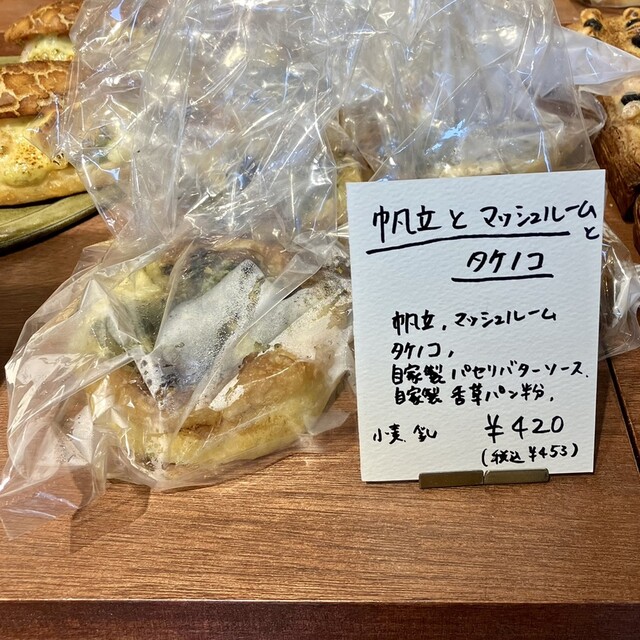 帆立とマッシュルームと
タケノコ
帆立、マッシュルーム
タケノコ、
自家製 パセリバターソース、
自家製 香草パン粉、
小麦 乳 ¥420
(税込 ¥453)